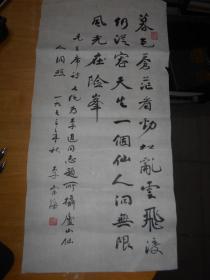 暮色蒼茫看勁松亂雲飛渡
仍從容天生一個仙人洞無限
風光在險峯
毛主席詩七绝為李進同志題所攝廬山仙
人洞照